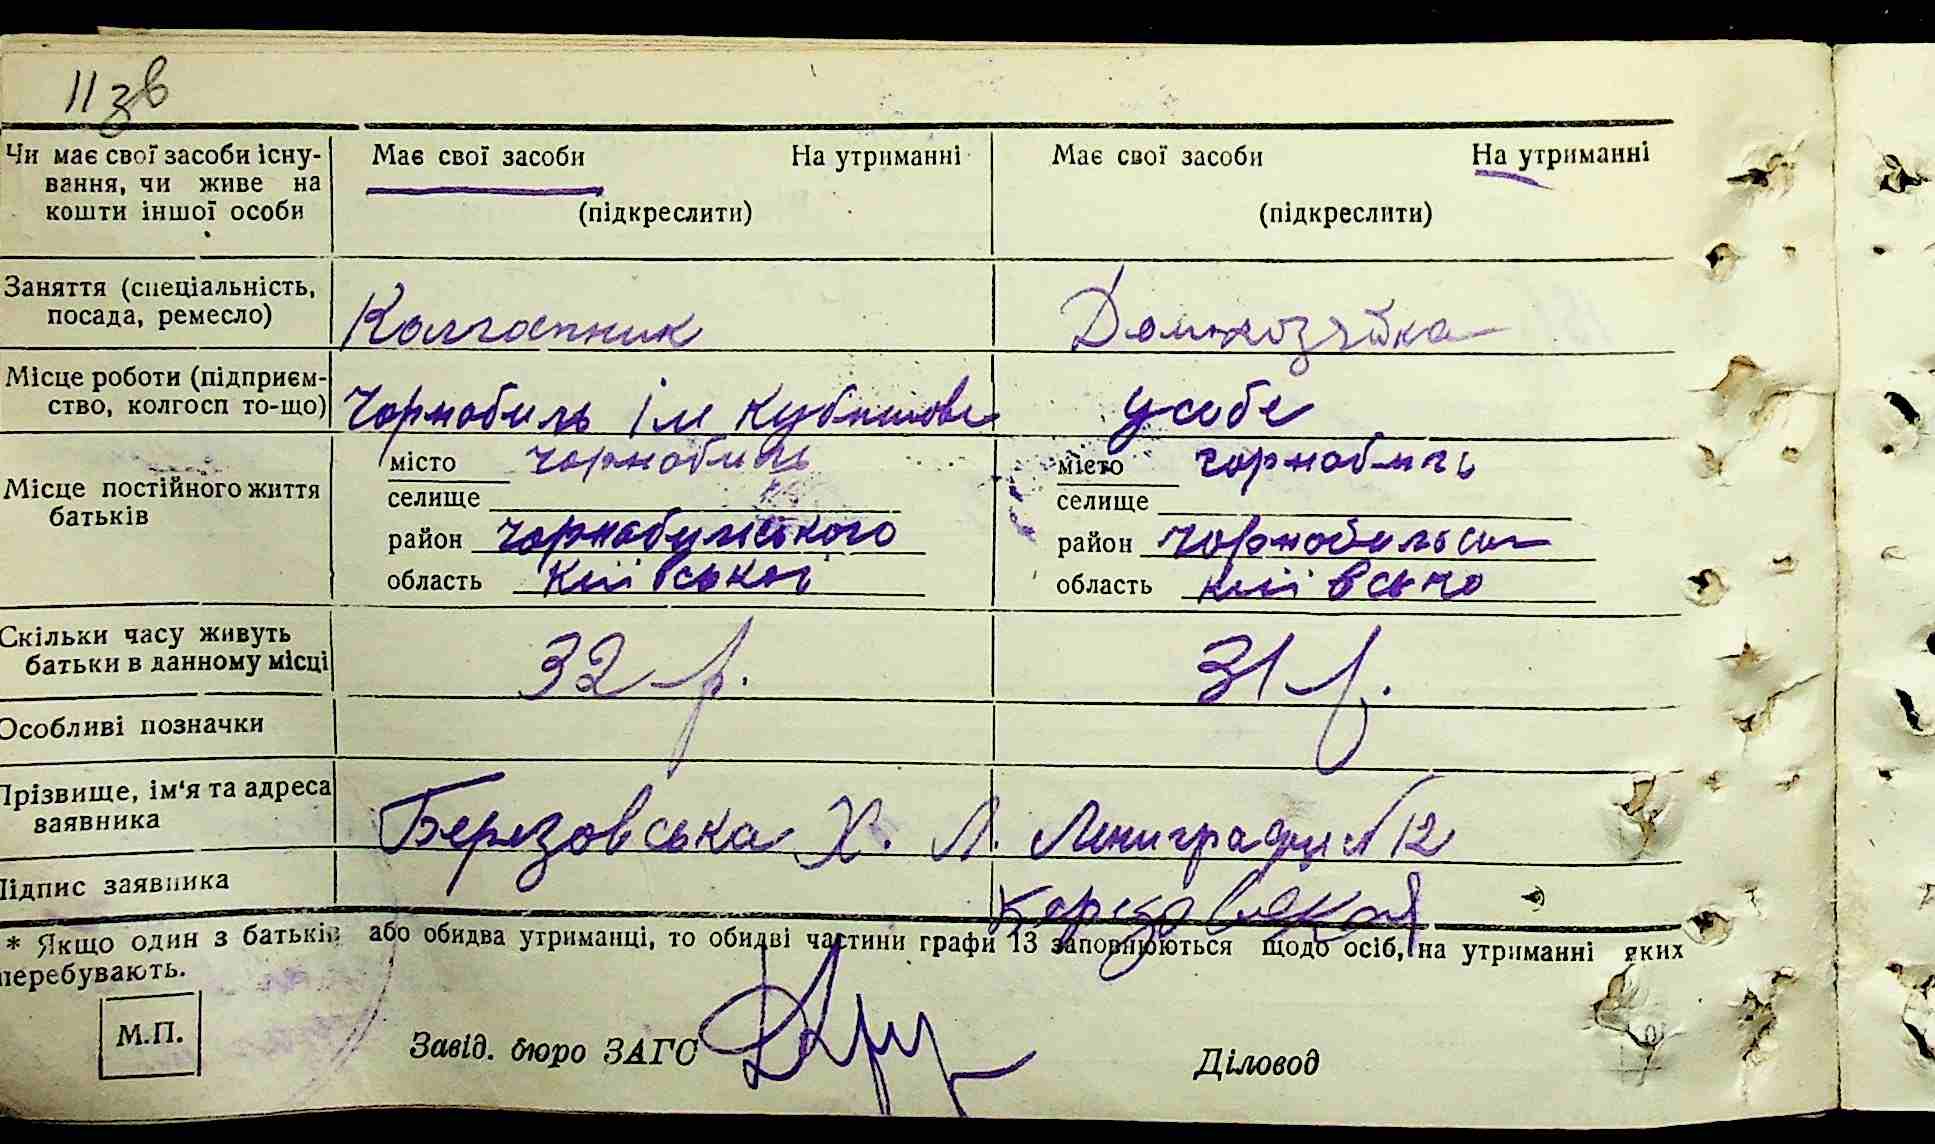 11 зв
Чи має свої засоби існу-
вання, чи живе на
кошти іншої особи
Має свої засоби На утриманні
(підкреслити)
Має свої засоби На утриманні
(підкреслити)
Заняття (спеціальність,
посада, ремесло)
Колгоспник
Домхозяйка
Місце роботи (підприєм-
ство, колгосп то-що)
Чорнобиль ім
у себе
Місце постійного життя
батьків
місто Чорнобиль
селище
район Чорнобильського
область Київської
місто Чорнобиль
селище
район
область
Скільки часу живуть
батьки в данному місці
32 р.
31 р.
Особливі позначки
Прізвище, ім'я та адреса
заявника
Березовська Х. Л. 12
Підпис заявника
* Якщо один з батьків або обидва утриманці, то обидві частини графи 13 заповнюються щодо осіб, на утриманні яких
перебувають.
М.П.
Завід. бюро ЗАГС
Діловод